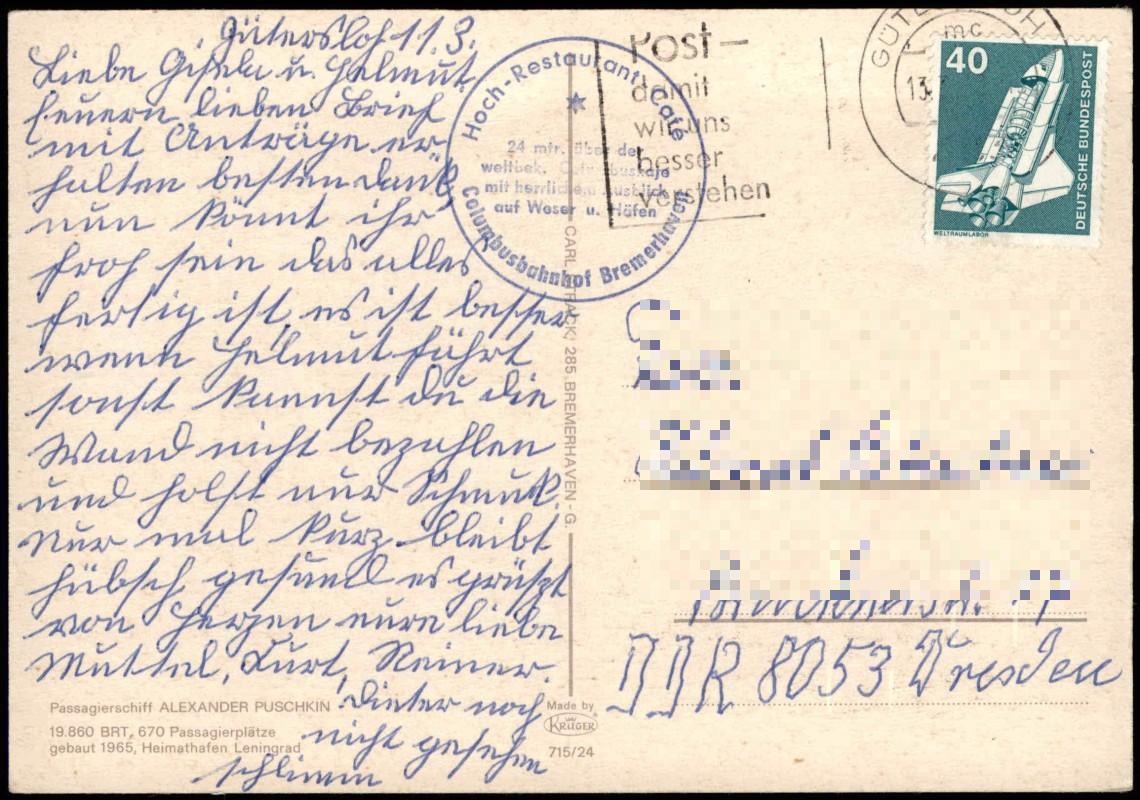 Gütersloh 11.3.
Liebe Gisela u. Helmut
Euern lieben Brief
mit Anträge er
halten besten Dank
nun könnt ihr
froh sein das alles
fertig ist, es ist besser
wenn Helmut fährt
sonst kannst du die
Wand nicht bezahlen
und holst nur Schmuk.
Nur mal kurz bleibt
hübsch gesund es grüßt
von Herzen eure liebe
Muttel, Kurt, Reiner.
Dieter noch
nicht gesehen
schlimm
Passagierschiff ALEXANDER PUSCHKIN
19.860 BRT, 670 Passagierplätze
gebaut 1965, Heimathafen Leningrad
Hoch-Restaurant Cafe
24 mtr. über der
weltbek. Columbuskaje
mit herrlichem Ausblick
auf Weser u. Häfen
Columbusbahnhof Bremerhaven
Post–
damit
wir uns
besser
verstehen
GÜTERSLOH
mc
13.
40
DEUTSCHE BUNDESPOST
WELTRAUMLABOR
CARL 285 BREMERHAVEN - G.
Made by
KRÜGER
715/24
DDR 8053 Dresden